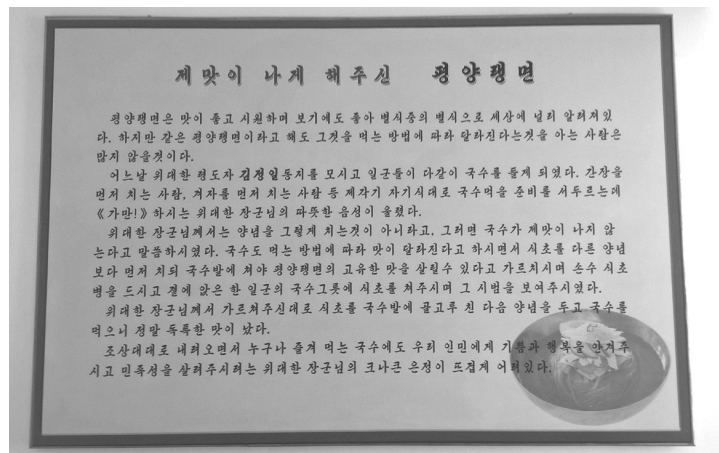 제맛이 나게 해주신 평양랭면
평양랭면은 맛이 좋고 시원하며 보기에도 좋아 별식중의 별식으로 세상에 널리 알려져있
다. 하지만 같은 평양랭면이라고 해도 그것을 먹는 방법에 따라 달라진다는것을 아는 사람은
많지 않을것이다.
어느날 위대한 령도자 김정일동지를 모시고 일군들이 다같이 국수를 들게 되였다. 간장을
먼저 치는 사람, 겨자를 먼저 치는 사람 등 제각기 자기식대로 국수먹을 준비를 서두르는데
《가만!》하시는 위대한 장군님의 따뜻한 음성이 울렸다.
위대한 장군님께서는 양념을 그렇게 치는것이 아니라고, 그러면 국수가 제맛이 나지 않
는다고 말씀하시였다. 국수도 먹는 방법에 따라 맛이 달라진다고 하시면서 식초를 다른 양념
보다 먼저 치되 국수발에 쳐야 평양랭면의 고유한 맛을 살릴수 있다고 가르치시며 손수 식초
병을 드시고 곁에 앉은 한 일군의 국수그릇에 식초를 쳐주시며 그 시범을 보여주시였다.
위대한 장군님께서 가르쳐주신대로 식초를 국수발에 골고루 친 다음 양념을 두고 국수를
먹으니 정말 독특한 맛이 났다.
조상대대로 내려오면서 누구나 즐겨 먹는 국수에도 우리 인민에게 기쁨과 행복을 안겨주
시고 민족성을 살려주시려는 위대한 장군님의 크나큰 은정이 뜨겁게 어려있다.